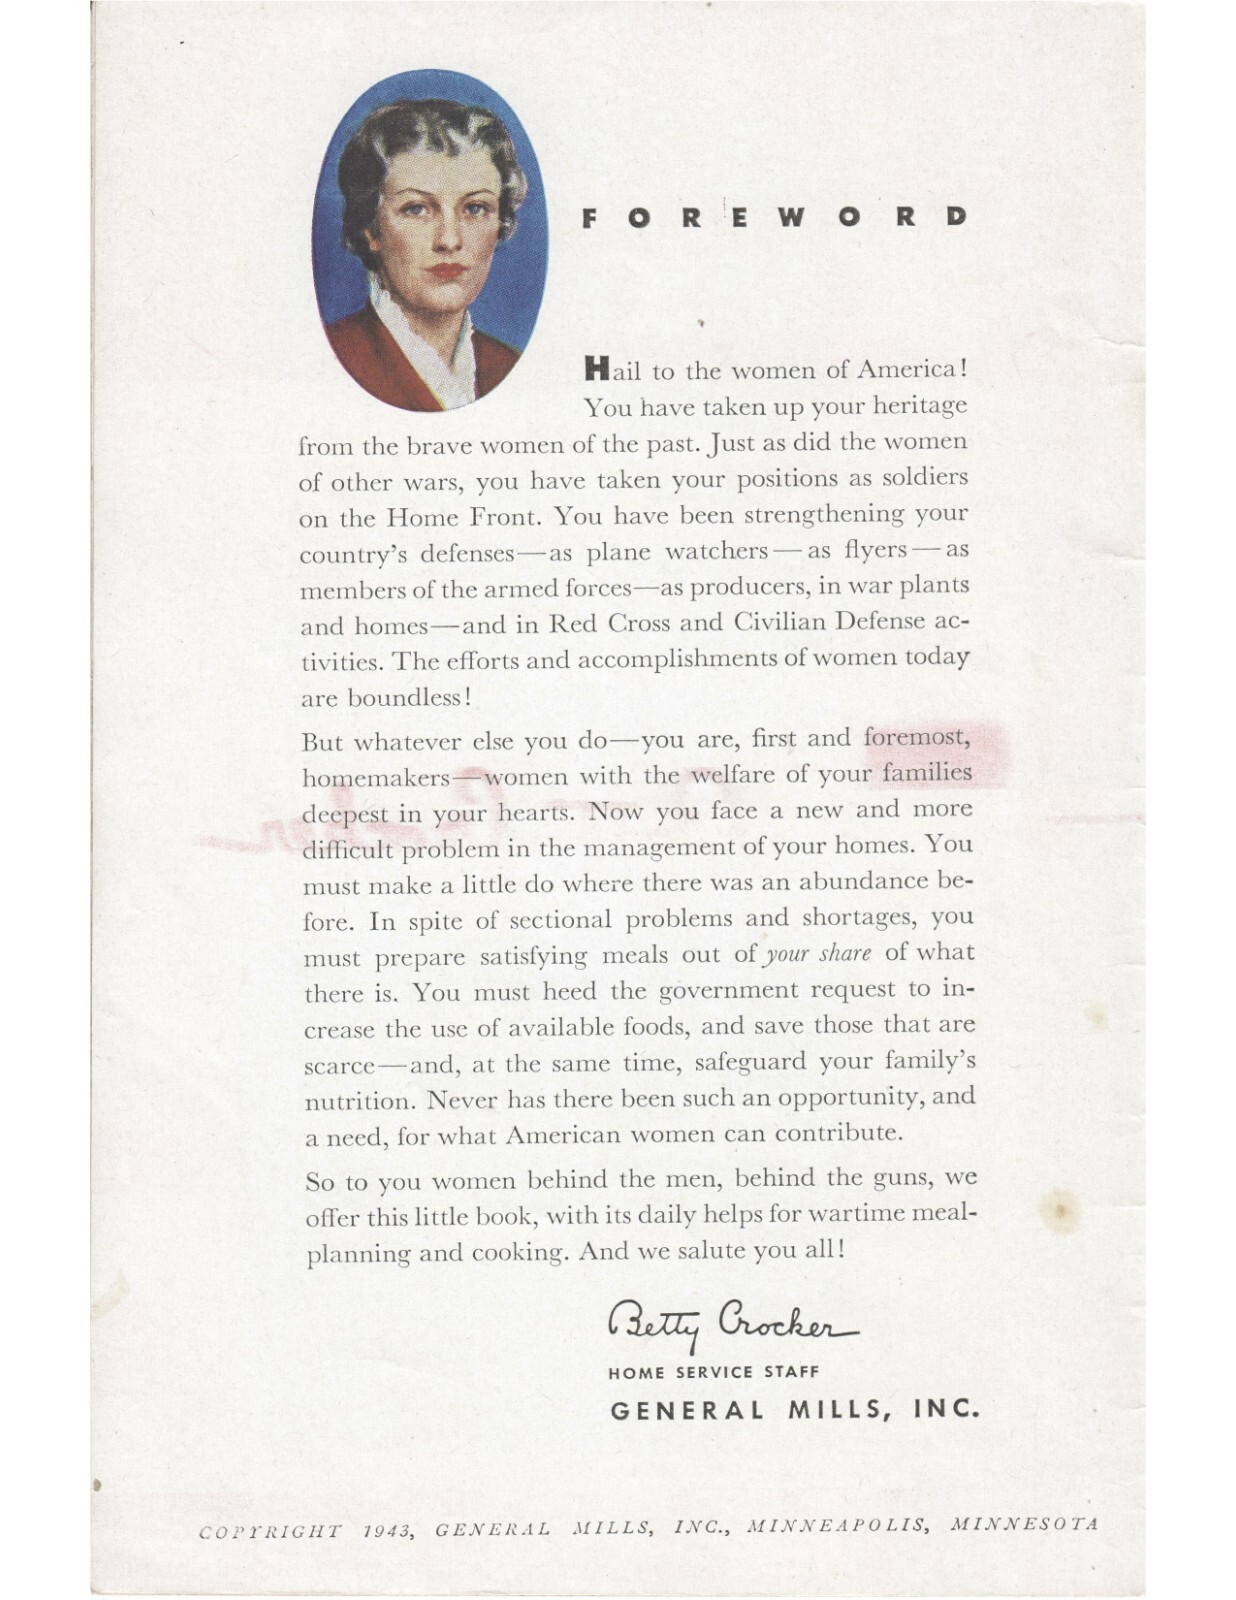 FOREWORD
Hail to the women of America!
You have taken up your heritage
from the brave women of the past. Just as did the women
of other wars, you have taken your positions as soldiers
on the Home Front. You have been strengthening your
country's defenses—as plane watchers—as flyers—as
members of the armed forces—as producers, in war plants
and homes—and in Red Cross and Civilian Defense ac-
tivities. The efforts and accomplishments of women today
are boundless!
But whatever else you do—you are, first and foremost,
homemakers—women with the welfare of your families
deepest in your hearts. Now you face a new and more
difficult problem in the management of your homes. You
must make a little do where there was an abundance be-
fore. In spite of sectional problems and shortages, you
must prepare satisfying meals out of your share of what
there is. You must heed the government request to in-
crease the use of available foods, and save those that are
scarce—and, at the same time, safeguard your family's
nutrition. Never has there been such an opportunity, and
a need, for what American women can contribute.
So to you women behind the men, behind the guns, we
offer this little book, with its daily helps for wartime meal-
planning and cooking. And we salute you all!
Betty Crocker
HOME SERVICE STAFF
GENERAL MILLS, INC.
COPYRIGHT 1943, GENERAL MILLS, INC., MINNEAPOLIS, MINNESOTA